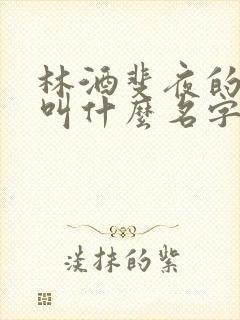 林洒斐夜的
叫什麼名字
淡抹的紫